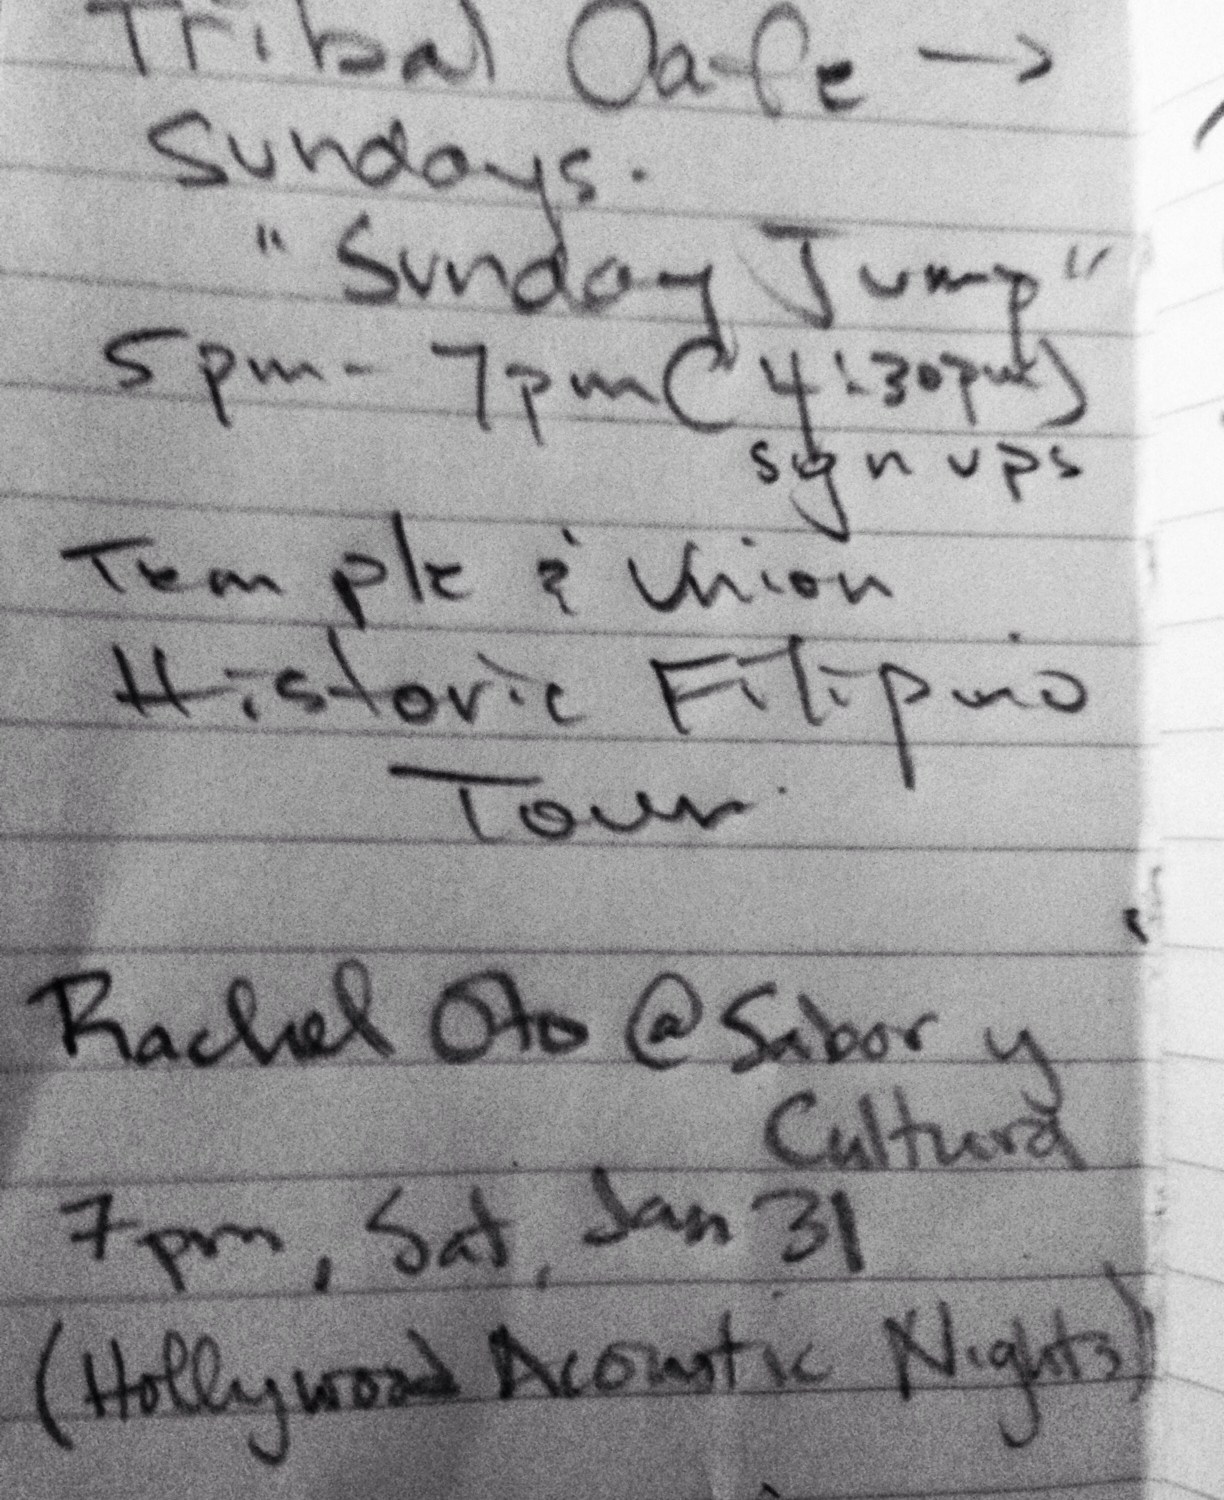 Tribal Cafe →
Sundays.
"Sunday Jump"
5pm - 7pm (4:30pm)
sign ups
Temple & Union
Historic Filipino
Tour.
Rachel Oto @ Sabor y
Cultura
7pm, Sat, Jan 31
(Hollywood Acoustic Nights)